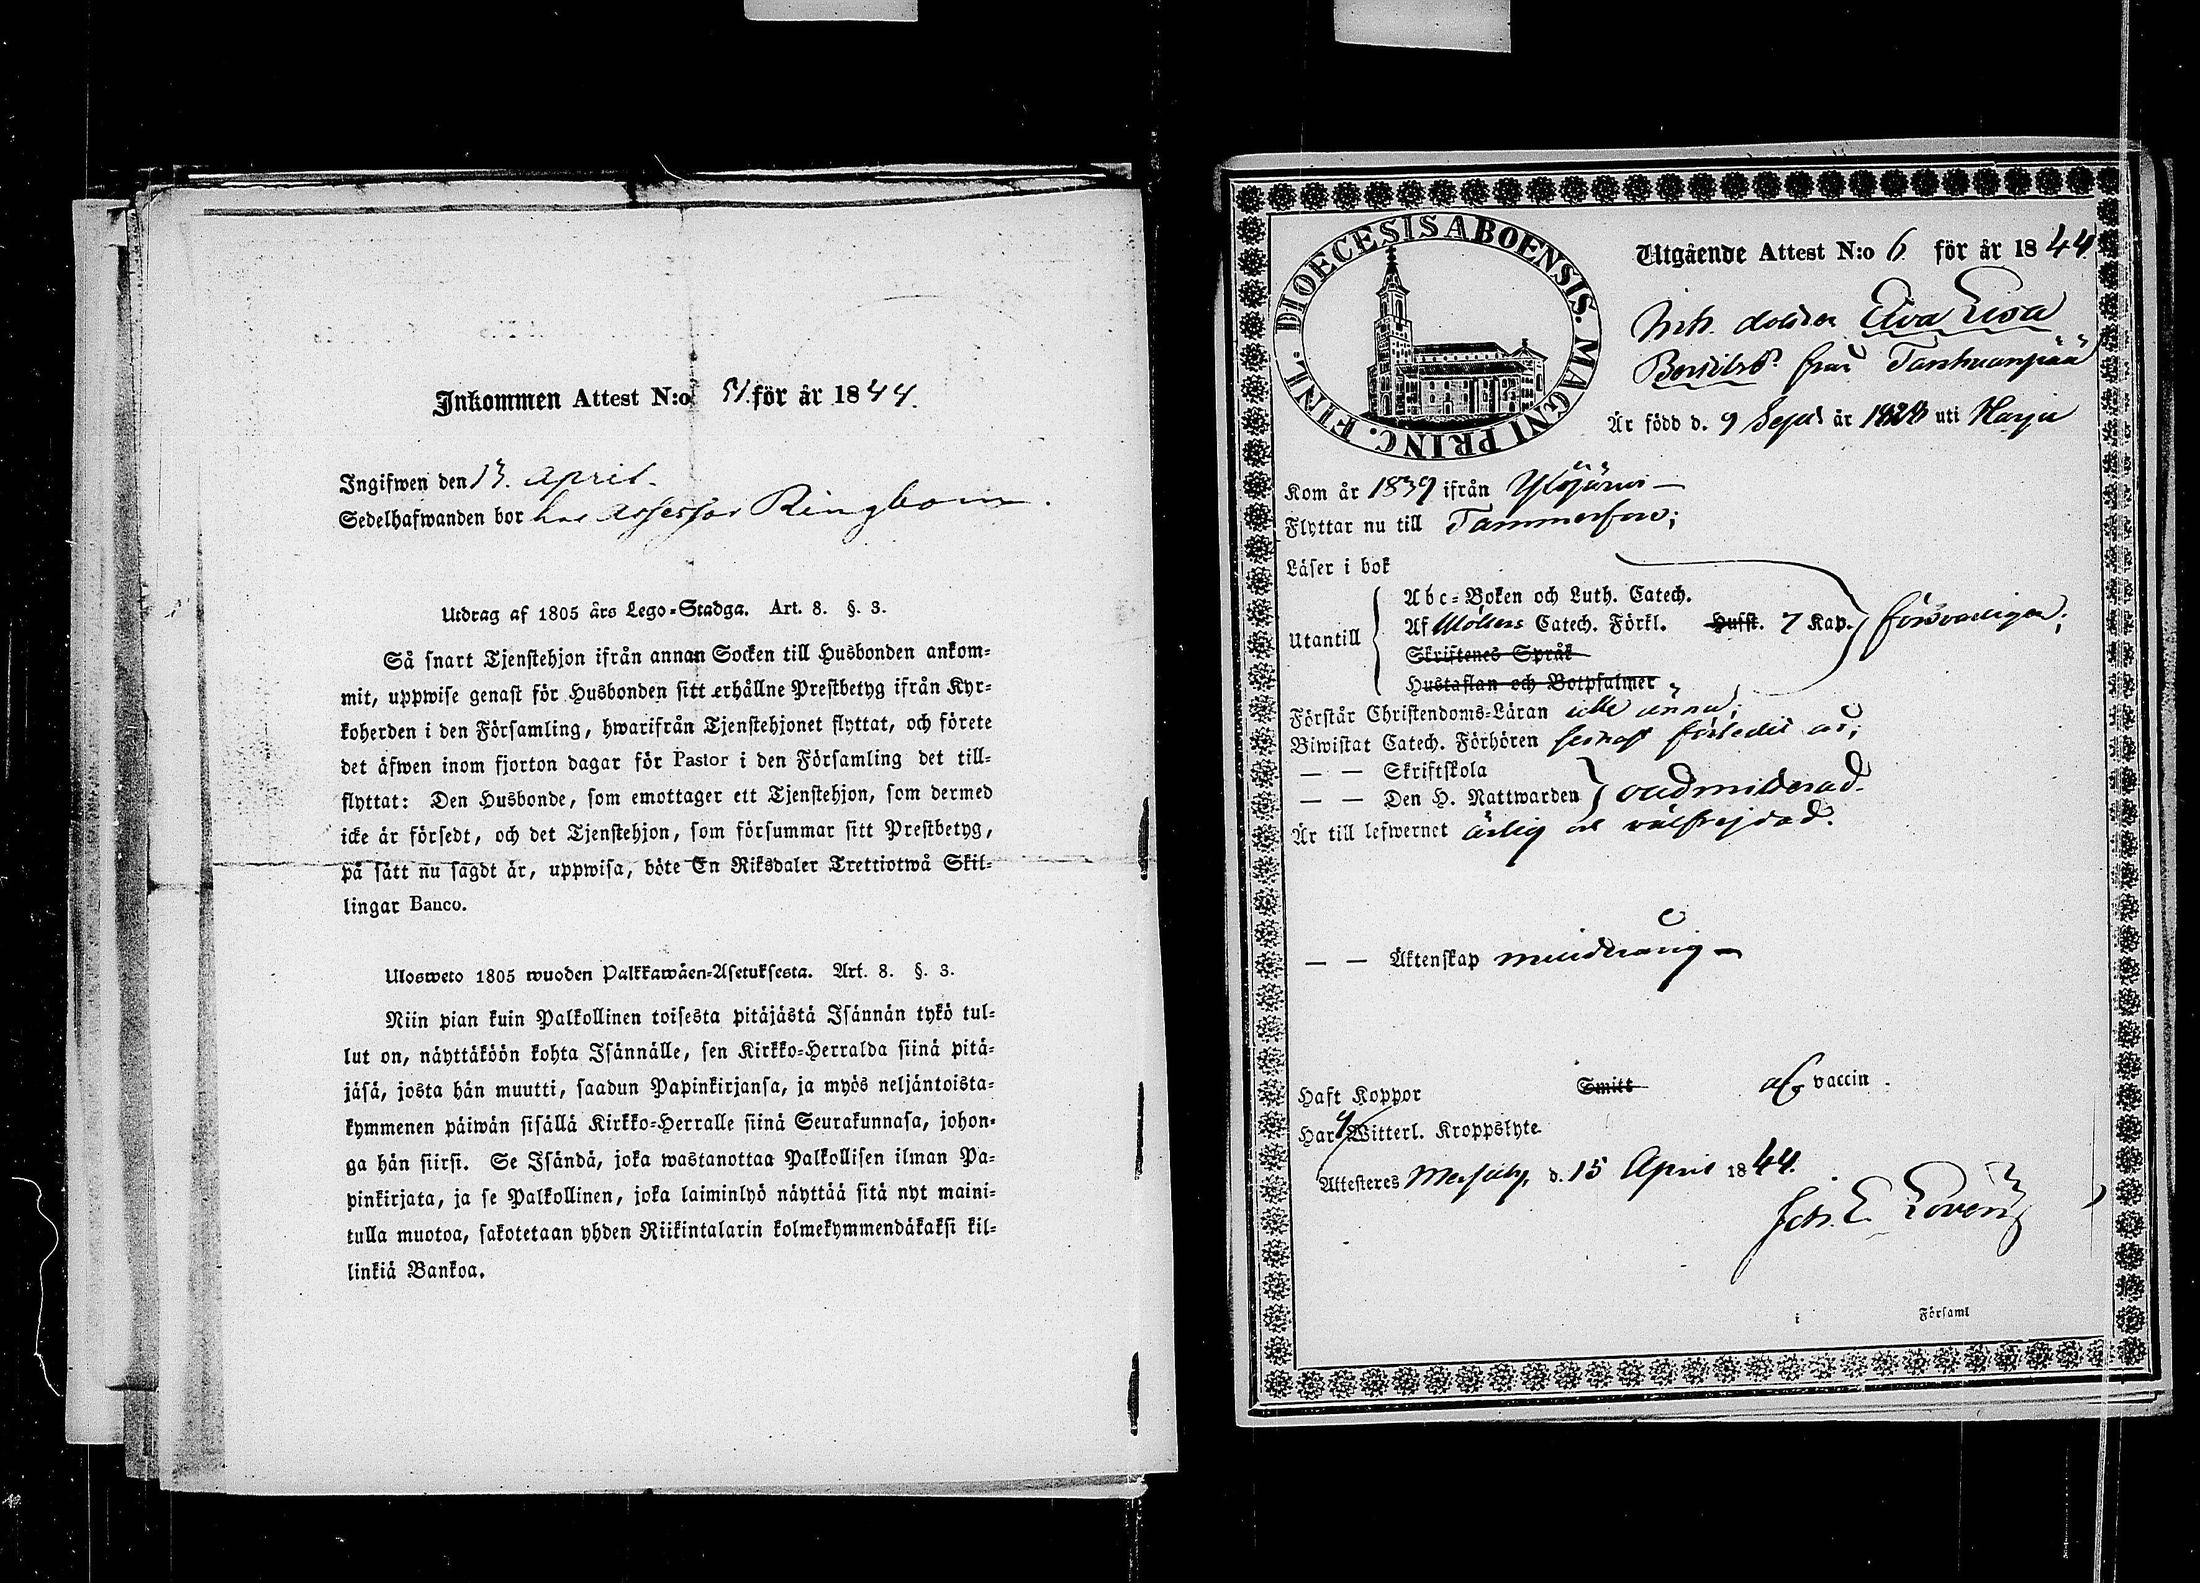 Inkommen Attest N:o 51. för år 1844.
Ingifwen den 13. April.
Sedelhafwanden bor hos Assessor Ringbom.
Utdrag af 1805 års Lego-Stadga. Art. 8. §. 3.
Så snart Tjenstehjon ifrån annan Socken till Husbonden ankom-
mit, uppwise genast för Husbonden sitt erhållne Prestbetyg ifrån Kyr-
koherden i den Församling, hwarifrån Tjenstehjonet flyttat, och förete
det äfwen inom fjorton dagar för Pastor i den Församling det till-
flyttat: Den Husbonde, som emottager ett Tjenstehjon, som dermed
icke är försedt, och det Tjenstehjon, som försummar sitt Prestbetyg,
på sätt nu sagdt är, uppwisa, böte En Riksdaler Trettiotwå Skil-
lingar Banco.
Ulosweto 1805 wuoden Palkkawäen-Asetuksesta. Art. 8. §. 3.
Niin pian kuin Palkollinen toisesta pitäjästä Isännän tykö tul-
lut on, näyttäköön kohta Isännälle, sen Kirkko-Herralda siinä pitä-
jäsä, josta hän muutti, saadun Papinkirjansa, ja myös neljäntoista-
kymmenen päiwän sisällä Kirkko-Herralle siinä Seurakunnasa, johon-
ga hän siirsi. Se Isändä, joka wastanottaa Palkollisen ilman Pa-
pinkirjata, ja se Palkollinen, joka laiminlyö näyttää sitä nyt maini-
tulla muotoa, sakotetaan yhden Riikintalarin kolmekymmendäkaksi kil-
linkiä Bankoa.
DIOECESIS ABOENSIS. MAGNI PRINC. FINL.
Utgående Attest N:o 6 för år 1844
dottren Eva Lisa
från Tanhuanpää
Är född d. 9 Sept år 1828 uti Harju
Kom år 1839 ifrån Ylöjärvi
Flyttar nu till Tammerfors;
Läser i bok
Abc-Boken och Luth. Catech.
Utantill Af Möllers Catech. Förkl. Husst. 7 Kap. försvarligen;
Skriftenes Språk
Hustaflan och Botpsalmer
Förstår Christendoms-Läran ännu;
Biwistat Catech. Förhören senast förledit år;
— — Skriftskola
— — Den H. Nattwarden oadmitterad.
Är till lefwernet ärlig och välfrejdad.
— — Äktenskap minderårig
Haft Koppor Smitt af vaccin.
Har Witterl. Kroppslyte
Attesteres Messuby, d. 15 April 1844.
i Församl